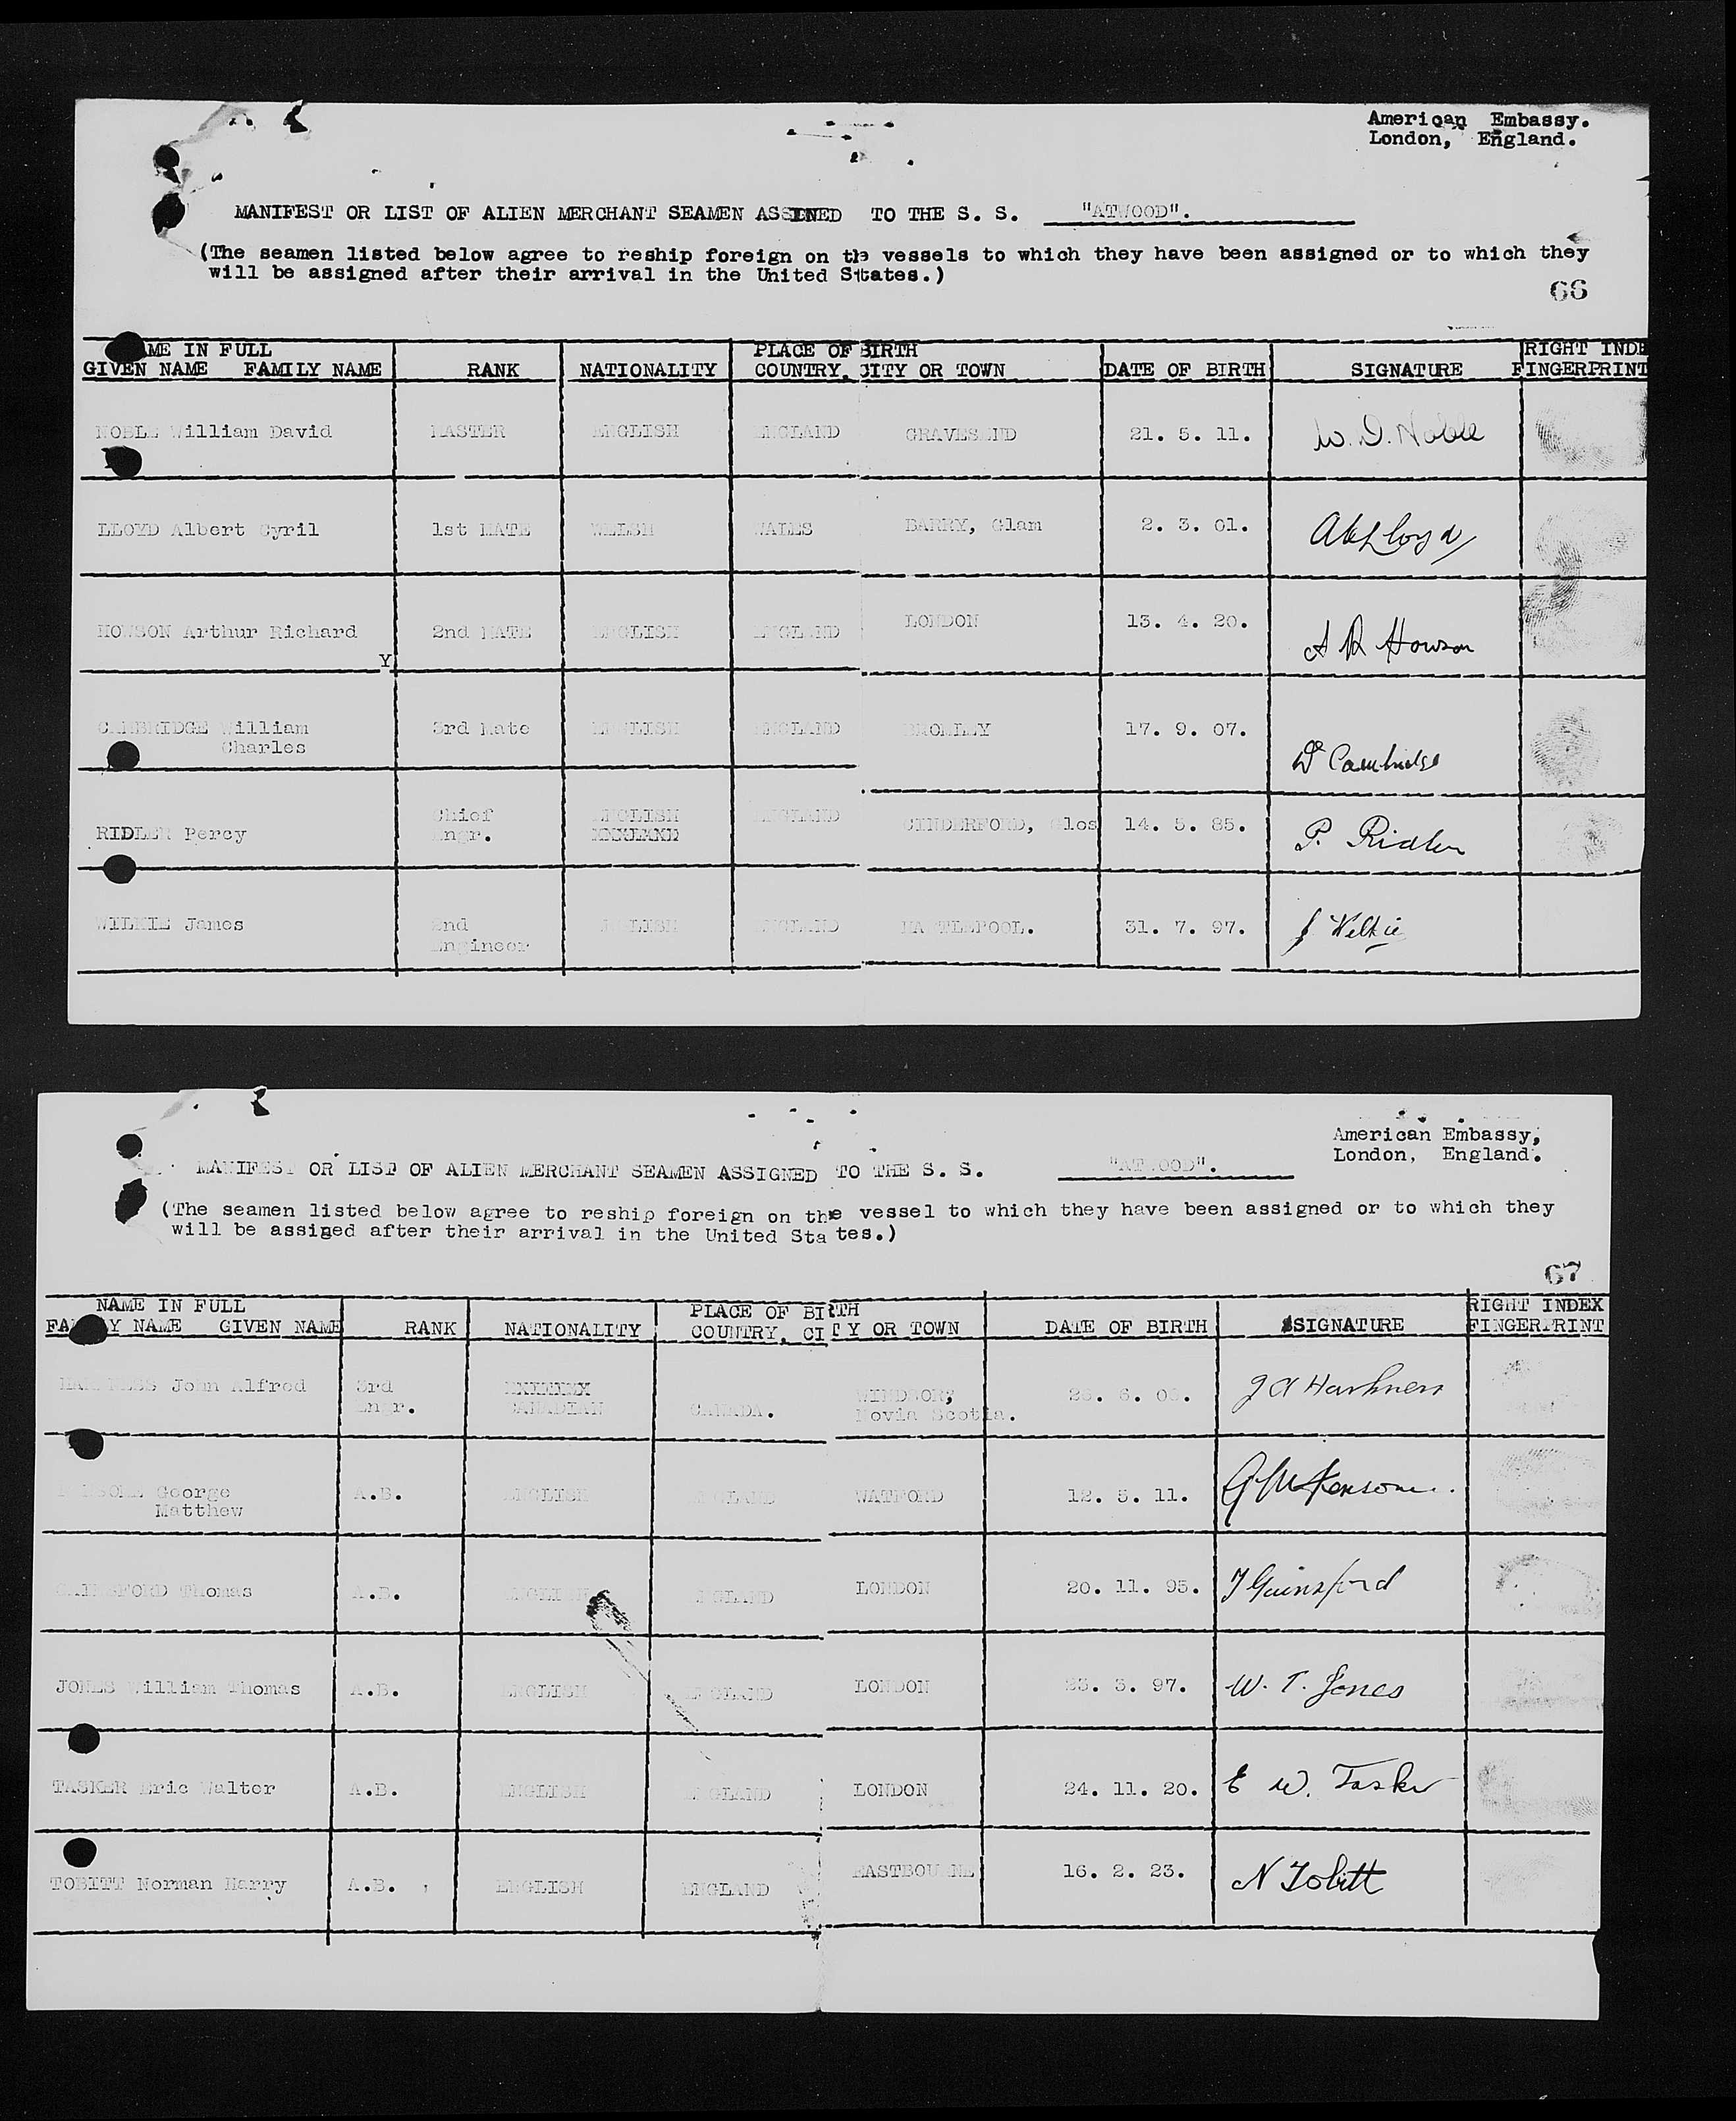 American Embassy.
London, England.
MANIFEST OR LIST OF ALIEN MERCHANT SEAMEN ASSINED TO THE S. S. "ATWOOD".
(The seamen listed below agree to reship foreign on the vessels to which they have been assigned or to which they
will be assigned after their arrival in the United States.)
66
NAME IN FULL PLACE OF BIRTH RIGHT INDE
GIVEN NAME FAMILY NAME RANK NATIONALITY COUNTRY, CITY OR TOWN DATE OF BIRTH SIGNATURE FINGERPRINT
NOBLE William David MASTER ENGLISH ENGLAND GRAVESEND 21. 5. 11. W. D. Noble
LLOYD Albert Cyril 1st MATE WELSH WALES BARRY, Glam 2. 3. 01. ACLloyd
HOWSON Arthur Richard 2nd MATE ENGLISH ENGLAND LONDON 13. 4. 20. A R Howson
Y
CAMBRIDGE William 3rd Mate ENGLISH ENGLAND BROMLEY 17. 9. 07.
Charles W Cambridge
Chief ENGLISH ENGLAND
RIDLER Percy Engr. CINDERFORD, Glos 14. 5. 85. P. Ridler
WILKIE James 2nd ENGLISH ENGLAND HARTLEPOOL. 31. 7. 97. J Wilkie
Engineer
American Embassy,
London, England.
MANIFEST OR LIST OF ALIEN MERCHANT SEAMEN ASSIGNED TO THE S. S. "ATWOOD".
(The seamen listed below agree to reship foreign on the vessel to which they have been assigned or to which they
will be assined after their arrival in the United States.)
67
NAME IN FULL PLACE OF BIRTH RIGHT INDEX
FAMILY NAME GIVEN NAME RANK NATIONALITY COUNTRY, CITY OR TOWN DATE OF BIRTH SIGNATURE FINGERPRINT
HARKNESS John Alfred 3rd WINDSOR, J A Harkness
Engr. CANADIAN CANADA. Novia Scotia.
George A.B. ENGLISH ENGLAND WATFORD 12. 5. 11.
Matthew
GAINSFORD Thomas A.B. ENGLISH ENGLAND LONDON 20. 11. 95. T Gainsford
JONES William Thomas A.B. ENGLISH ENGLAND LONDON 23. 3. 97. W. T. Jones
TASKER Eric Walter A.B. ENGLISH ENGLAND LONDON 24. 11. 20. E W. Tasker
TOBITT Norman Harry A.B. ENGLISH ENGLAND EASTBOURNE 16. 2. 23. N Tobitt